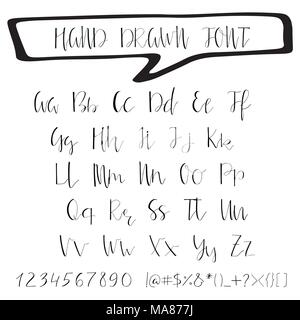 HAND DRAWN FONT
Aa Bb Cc Dd Ee Ff
Gg Hh Ii Jj Kk
Ll Mm Nn Oo Pp
Qq Rr Ss Tt Uu
Vv Ww Xx Yy Zz
1234567890 !@#$%&*()_+?×{}[]
alamy
www.alamy.com - MA877J